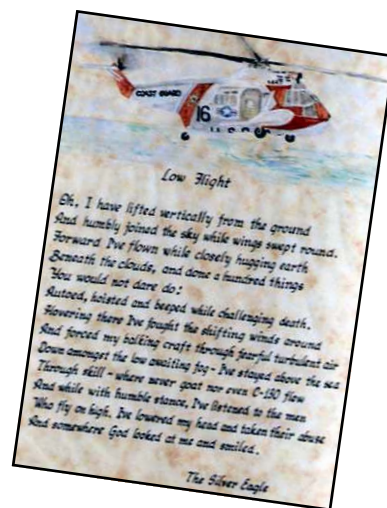 COAST GUARD
16
Low Flight
Oh, I have lifted vertically from the ground
And humbly joined the sky while wings swept round.
Forward I've flown while closely hugging earth
Beneath the clouds, and done a hundred things
You would not dare do!
Autoed, hoisted and beeped while challenging death.
Hovering there I've fought the shifting winds around
And forced my balking craft through fearful turbulent air
Down amongst the low waiting fog - I've stayed above the sea
Through skill - where never goat nor even C-130 flew
And while with humble stance, I've listened to the men
Who fly on high, I've lowered my head and taken their abuse
And somewhere God looked at me and smiled.
The Silver Eagle